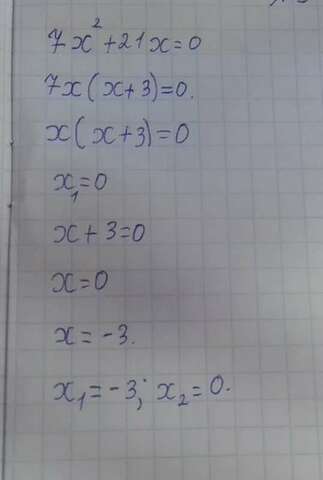 7x² + 21x = 0
7x(x+3)=0.
x(x+3)=0
x₁=0
x+3=0
x=0
x=-3.
x₁=-3; x₂=0.